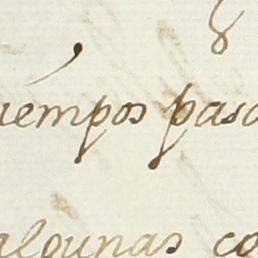 iempos pasa
algunas co